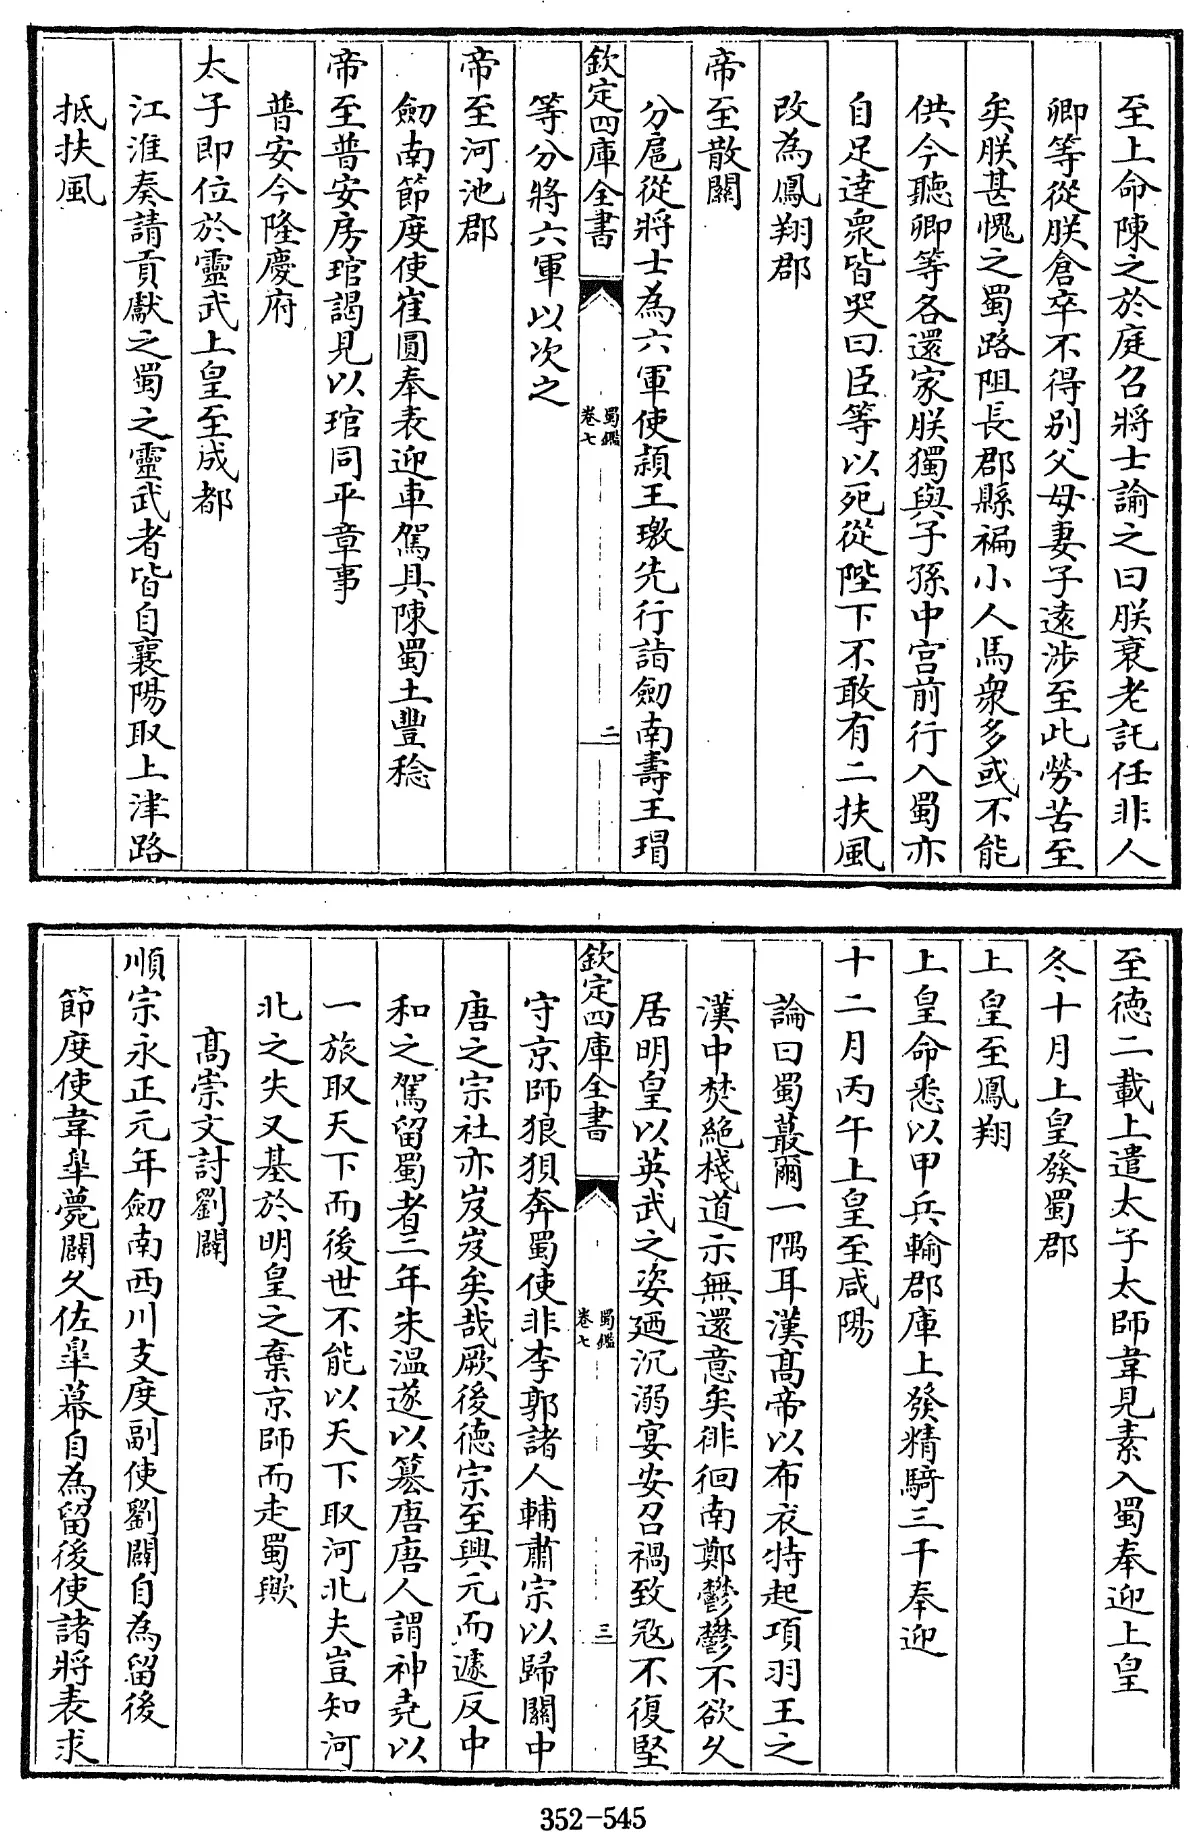 至上命陳之於庭召將士諭之曰朕衰老託任非人
卿等從朕倉卒不得别父母妻子逺涉至此勞苦至
矣朕甚愧之蜀路阻長郡縣褊小人馬衆多或不能
供今聽卿等各還家朕獨與子孫中宫前行入蜀亦
自足逹衆皆哭曰臣等以死從陛下不敢有二扶風
改為鳳翔郡
帝至散關
分扈從將士為六軍使頴王璬先行詣劒南壽王瑁
欽定四庫全書
蜀鑑
卷七
二
等分將六軍以次之
帝至河池郡
劒南節度使崔圓奉表迎車駕具陳蜀土豐稔
帝至普安房琯謁見以琯同平章事
普安今隆慶府
太子即位於靈武上皇至成都
江淮奏請貢獻之蜀之靈武者皆自襄陽取上津路
抵扶風
至徳二載上遣太子太師韋見素入蜀奉迎上皇
冬十月上皇發蜀郡
上皇至鳳翔
上皇命悉以甲兵輸郡庫上發精騎三千奉迎
十二月丙午上皇至咸陽
論曰蜀蕞爾一隅耳漢髙帝以布衣特起項羽王之
漢中焚絶棧道示無還意矣徘徊南鄭鬱鬱不欲久
居明皇以英武之姿廼沉溺宴安召禍致冦不復堅
欽定四庫全書
蜀鑑
卷七
三
守京師狼狽奔蜀使非李郭諸人輔肅宗以歸關中
唐之宗社亦岌岌矣哉厥後徳宗至興元而遽反中
和之駕留蜀者三年朱温遂以簒唐唐人謂神堯以
一旅取天下而後世不能以天下取河北夫豈知河
北之失又基於明皇之棄京師而走蜀歟
髙崇文討劉闢
順宗永正元年劒南西川支度副使劉闢自為留後
節度使韋臯薨闢久佐臯幕自為留後使諸將表求
352-545